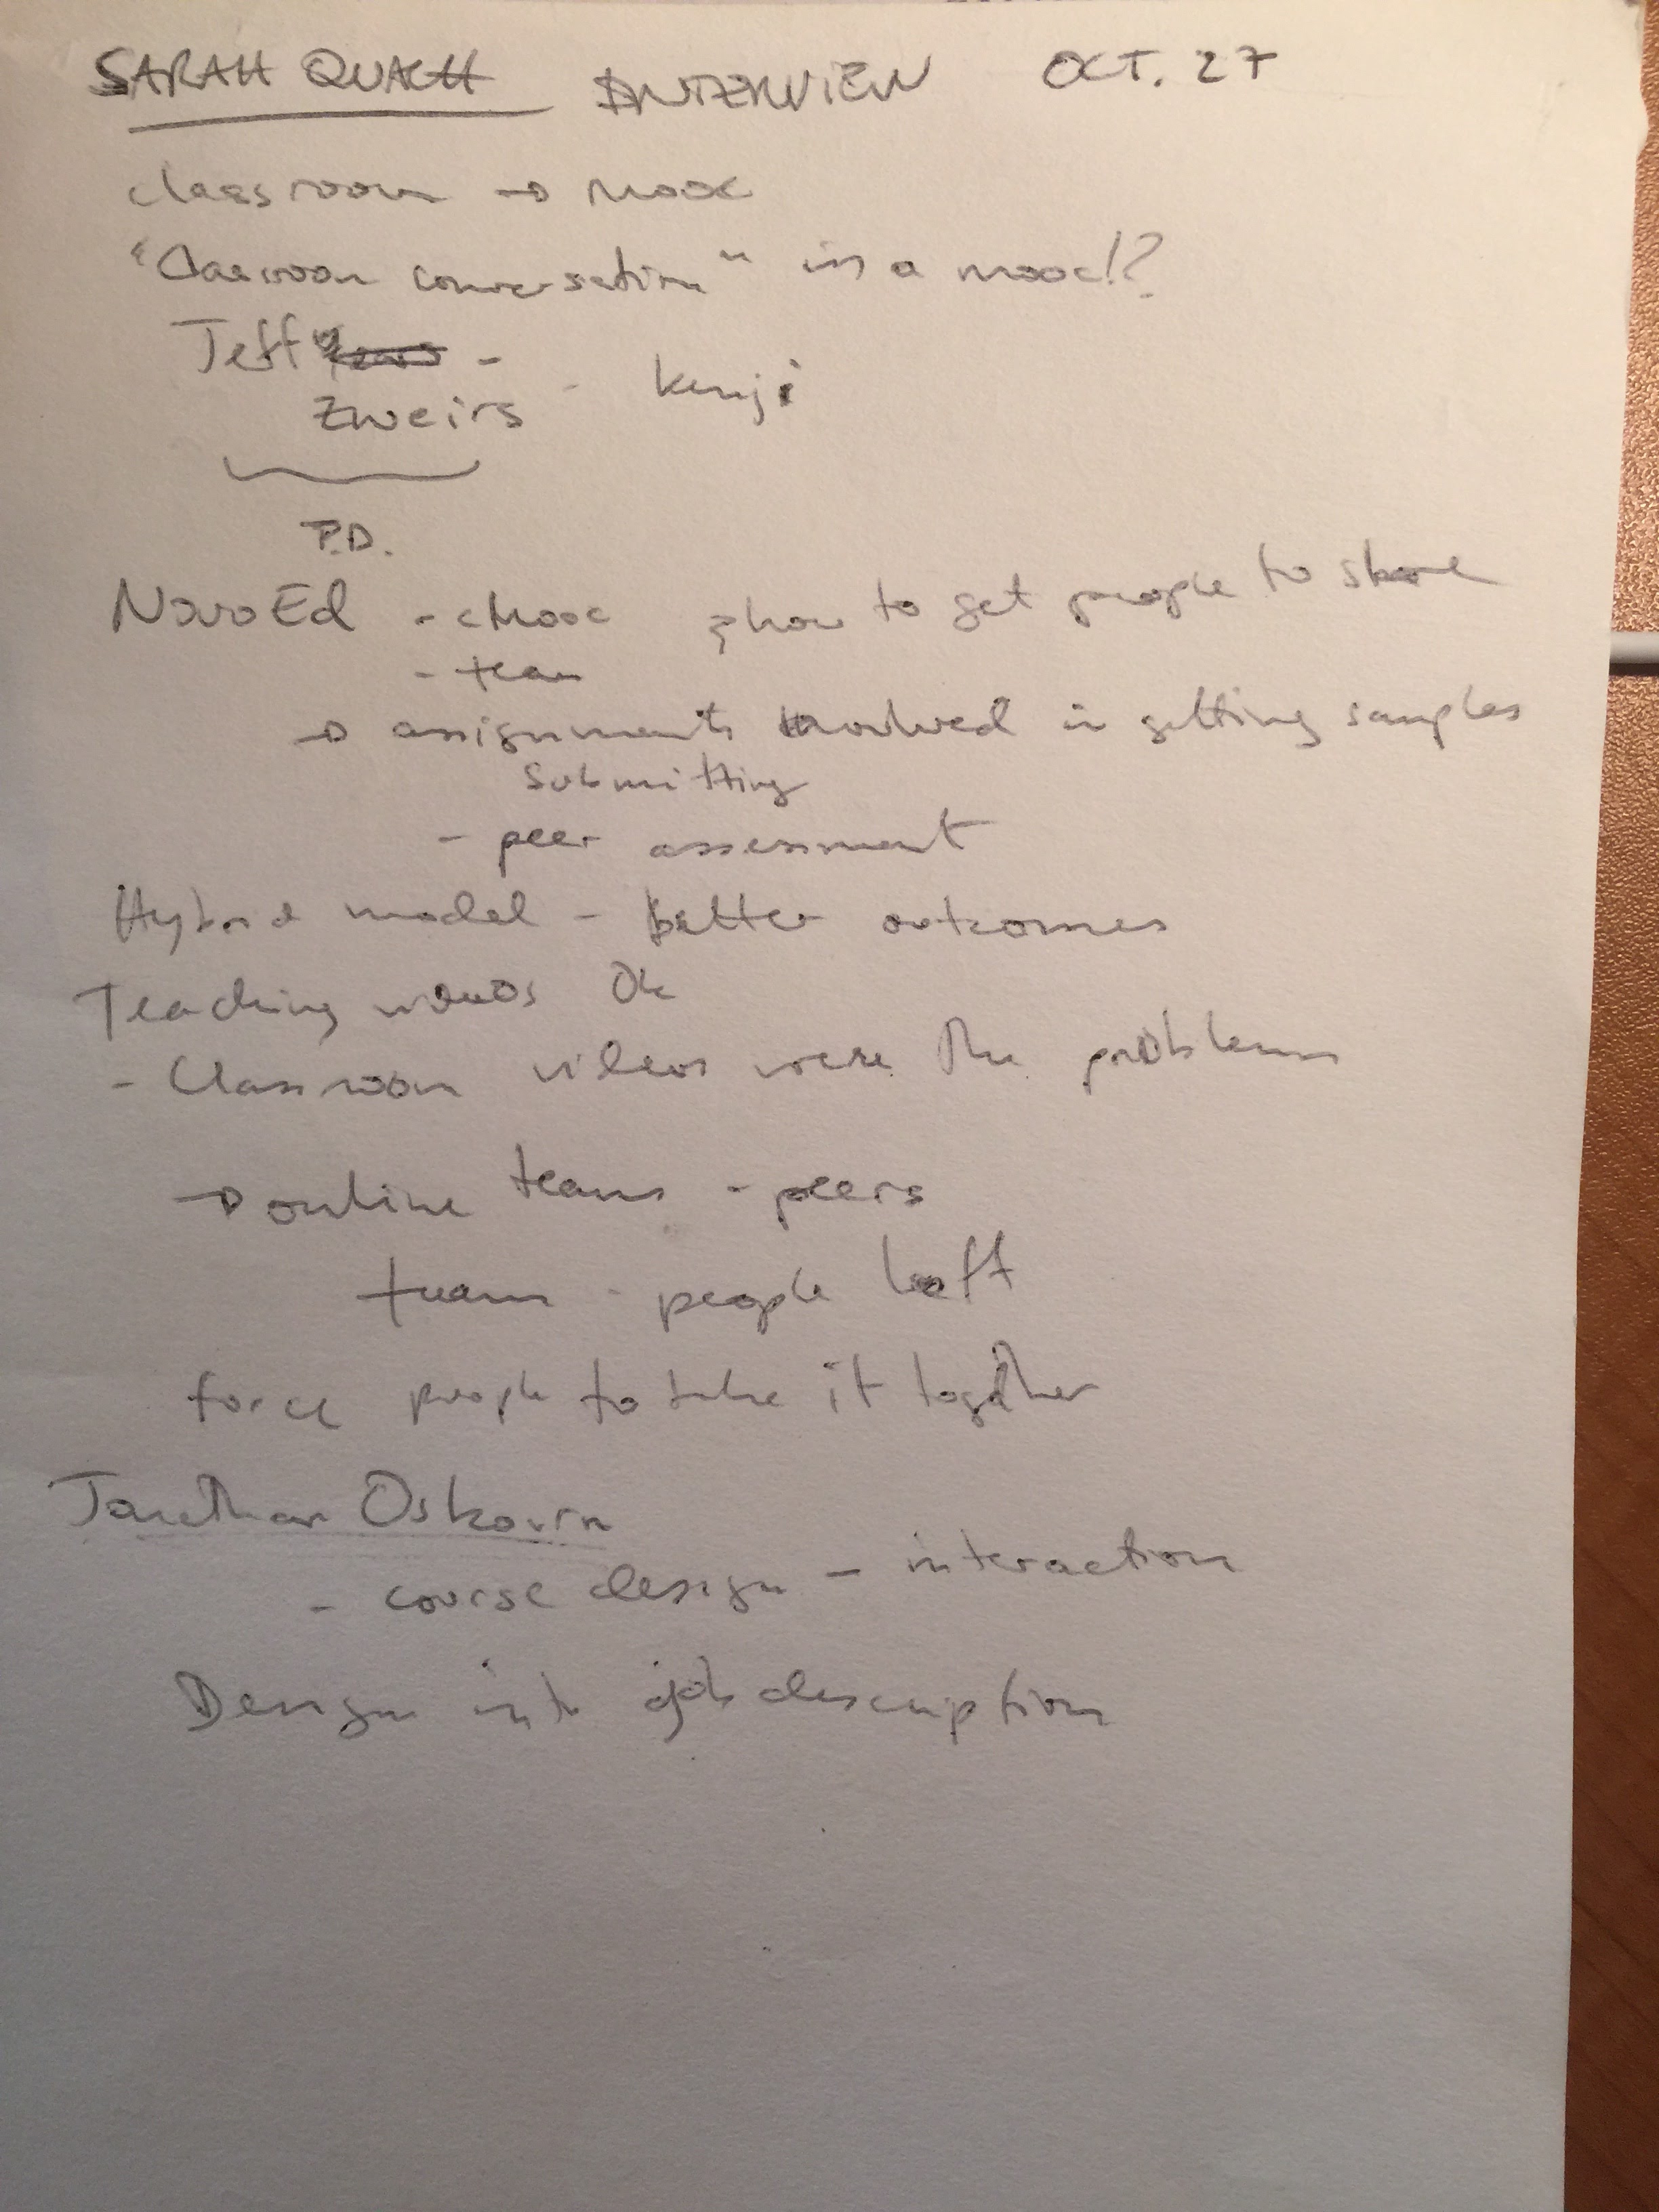 SARAH QUACH INTERVIEW OCT. 27
classroom → MOOC
"Classroom conversation" in a mooc!?
Jeff -
Zweirs - Kenji
P.D.
NovoEd - cMOOC how to get people to share
- team
→ assignments involved in getting samples
submitting
- peer assessment
Hybrid model - better outcomes
Teaching videos Ok
- Classroom videos were the problem
→ online teams - peers
teams - people left
force people to take it together
Jonathan Osborn
- course design - interaction
Design into job description